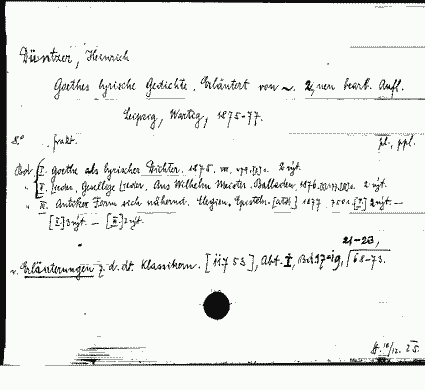 Düntzer, Heinrich
Goethes lyrische Gedichte. Erläutert von ~. 2, neu bearb. Aufl.
Leipzig, Wartig, 1875-77.
8° frakt. pl., ppl.
Bd I. Goethe als lyrischer Dichter. 1875. 2
" II. Lieder. Gesellige Lieder. Aus Wilhelm Meister. Balladen. 1876. 2
" III. Antiker Form sich nähernd. Elegien. Episteln. 1877. [I] 2 —
[I] 3 — [II] 2
21-23,
v. Erläuterungen z. d. dt. Klassikern. [11753], Abt. I, Bd 17-19, 68-73.